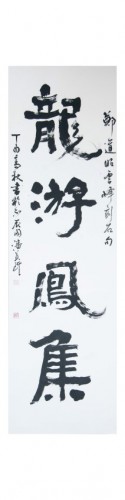 鄭道昭雲峰刻石句
龍游鳳集
丁酉高秋書於